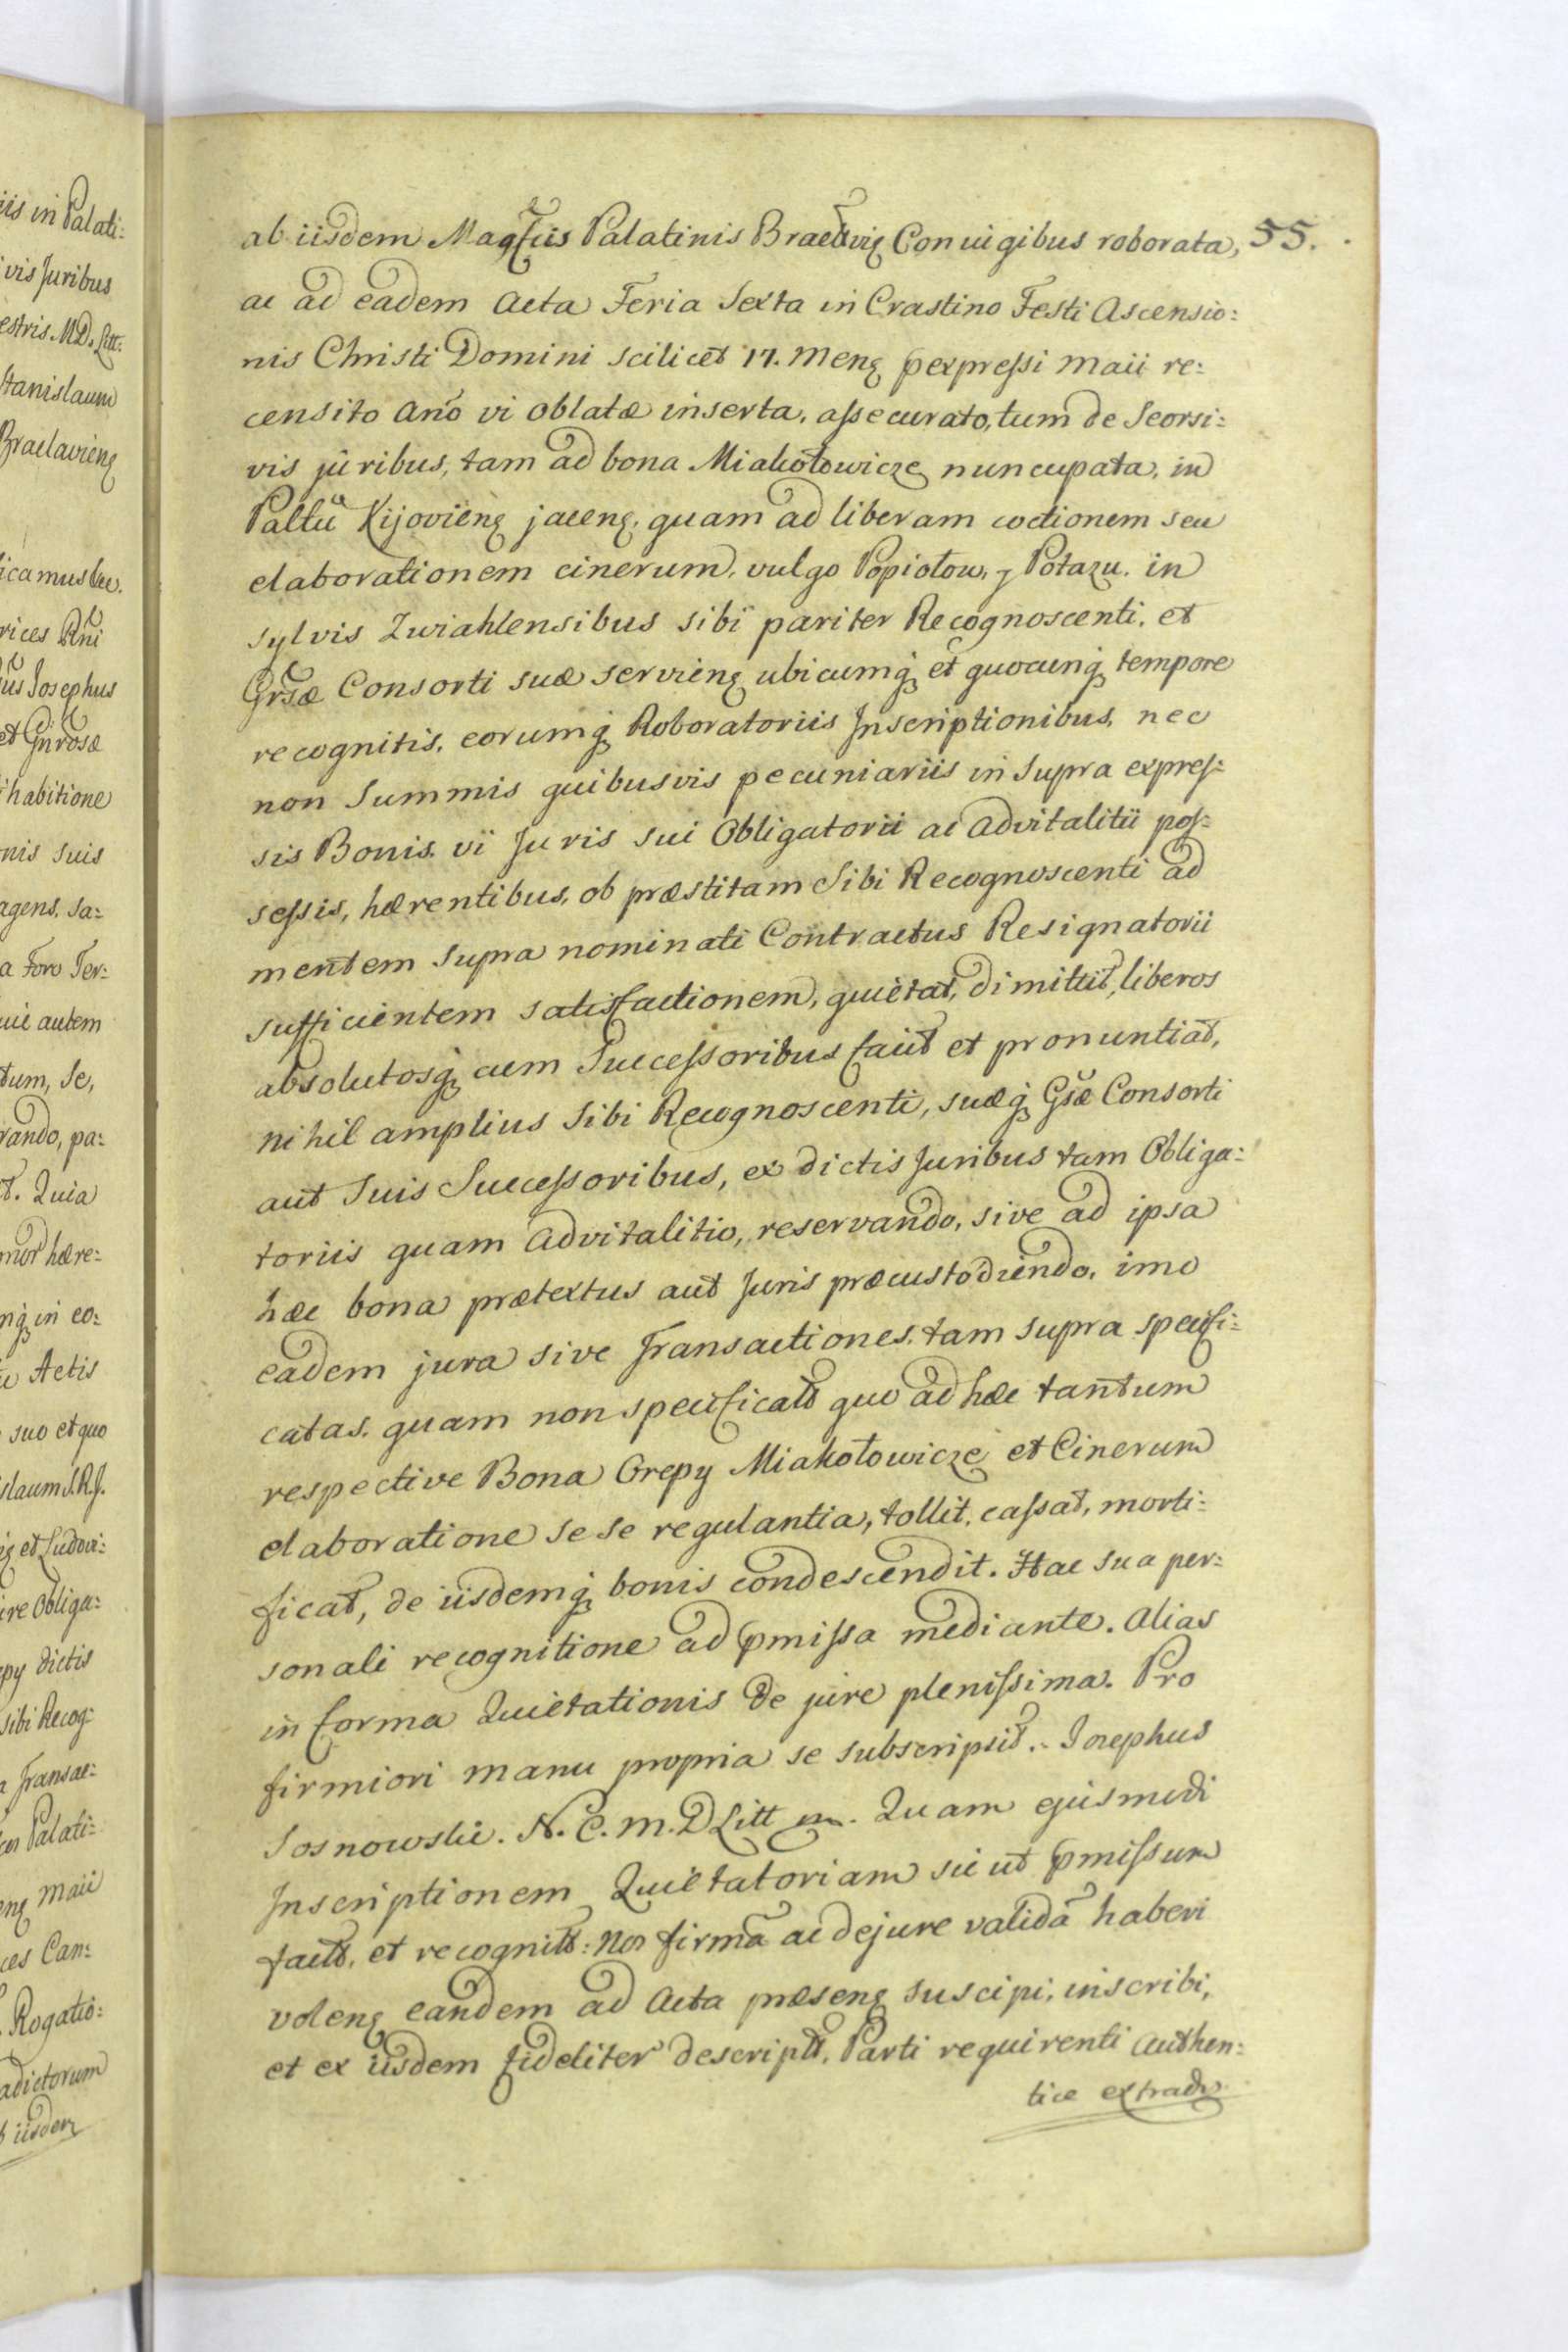 iis in Palati:
vis Juribus
estris. M.D. Litt:
Stanislaum
Braclavienę
icamus
rices
us Josephus
et Gnrosæ
habitione
nis suis
agens, sa:
a Foro Ter:
uic autem
tum, Se,
rando, pa:
t. Quia
hære:
nq; in eo:
Actis
suo et quo
islaum S.R.J.
et Ludovi:
ire Obliga:
epy dictis
sibi Recog:
a Transac:
Palati:
enę Maii
ces Can:
Rogatio:
adictorum
b iisdem
ab iisdem Magfcis Palatinis Braclvię Conjugibus roborata, 55.
ac ad eadem Acta Feria Sexta in Crastino Festi Ascensio:
nis Christi Domini scilicet 17. Menę pexpressi Maii re:
censito Anō vi Oblatæ inserta, assecurato, tum de Seorsi:
vis juribus, tam ad bona Miakołowicze nuncupata, in
Paltũ Kijovienę jacenę, quam ad liberam coctionem seu
elaborationem cinerum, vulgo Popiołow, y Potazu, in
sylvis Zwiahlensibus sibi pariter Recognoscenti, et
Grsæ Consorti suæ servienę ubicumq; et quocunq; tempore
recognitis, eorumq; Roboratoriis Inscriptionibus, nec
non Summis quibusvis pecuniariis in supra expres:
sis Bonis, vi Juris sui Obligatorii ac Advitalitii pos:
sessis, hærentibus, ob præstitam Sibi Recognoscenti ad
mentem supra nominati Contractus Resignatorii
sufficientem satisfactionem, quietat, dimittit, liberos
absolutosq; cum Successoribus facit et pronuntiat,
nihil amplius Sibi Recognoscenti, suæq; Gsæ Consorti
aut Suis Successoribus, ex dictis Juribus tam Obliga:
toriis quam Advitalitio, reservando, sive ad ipsa
hæc bona prætextus aut Juris præcustodiendo, imo
eadem jura sive Transactiones, tam supra specifi:
catas, quam non specificat quo ad hæc tantum
respective Bona Crepy Miakołowicze et Cinerum
elaboratione se se regulantia, tollit, cassat, morti:
ficat, de iisdemq; bonis condescendit. Hac sua per:
sonali recognitione ad pmissa mediante. Alias
in forma Quietationis de jure plenissima. Pro
firmiori manu propria se subscripsit. Josephus
Sosnowski. N. C. M. D Litt m. Quam ejusmodi
Inscriptionem Quietatoriam sic ut pmissum
facit, et recognit: Nos firmã ac de jure validã haberi
volenę eandem ad Acta præsenę suscipi, inscribi,
et ex iisdem fideliter descript, Parti requirenti Authen:
tice extradi